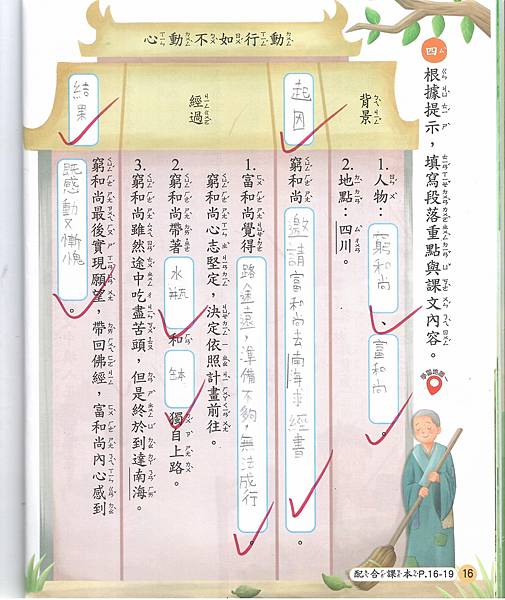 心動不如行動
四 根據提示，填寫段落重點與課文內容。
學習地圖一
背景
1. 人物：窮和尚、富和尚。
2. 地點：四川。
起因
窮和尚邀請富和尚去南海求經書。
經過
1. 富和尚覺得路途遠，準備不夠，無法成行。
窮和尚心志堅定，決定依照計畫前往。
2. 窮和尚帶著水瓶和缽，獨自上路。
3. 窮和尚雖然途中吃盡苦頭，但是終於到達南海。
結果
窮和尚最後實現願望，帶回佛經，富和尚內心感到
既感動又慚愧。
配合課本P.16-19
16